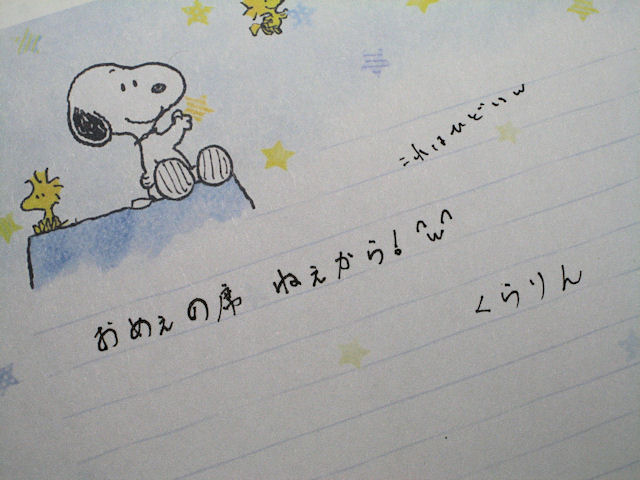 これはひどいw
おめぇの席 ねぇから! ^w^
くらりん